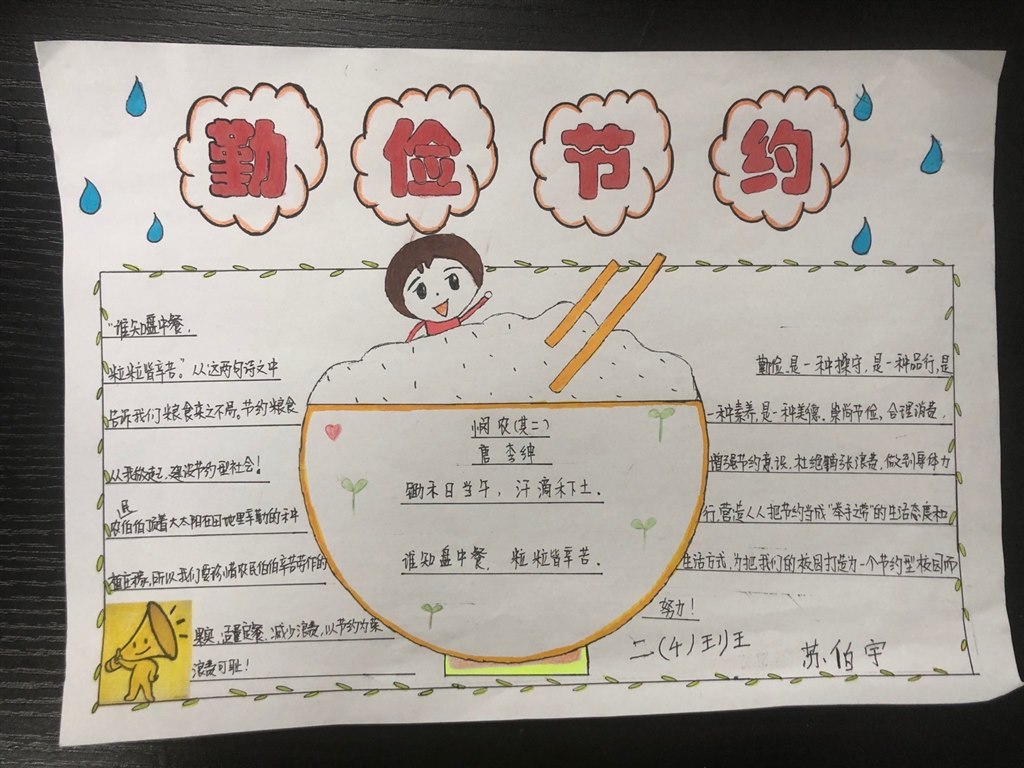 勤俭节约
"谁知盘中餐,
粒粒皆辛苦。"从这两句诗文中
告诉我们粮食来之不易。节约粮食
从我做起,建设节约型社会!
农民伯伯顶着大太阳在田地里辛勤的种
植庄稼,所以我们要珍惜农民伯伯辛苦劳作的
果实,适量定餐、减少浪费,以节约为荣
浪费可耻!
悯农(其二)
唐 李绅
锄禾日当午,汗滴禾下土。
谁知盘中餐,粒粒皆辛苦。
勤俭是一种操守,是一种品行,是
一种素养,是一种美德。崇尚节俭,合理消费,
增强节约意识,杜绝铺张浪费,做到身体力
行,营造人人把节约当成"举手之劳"的生活态度和
生活方式,为把我们的校园打造为一个节约型校园而
努力!
二(4)班
苏伯宇